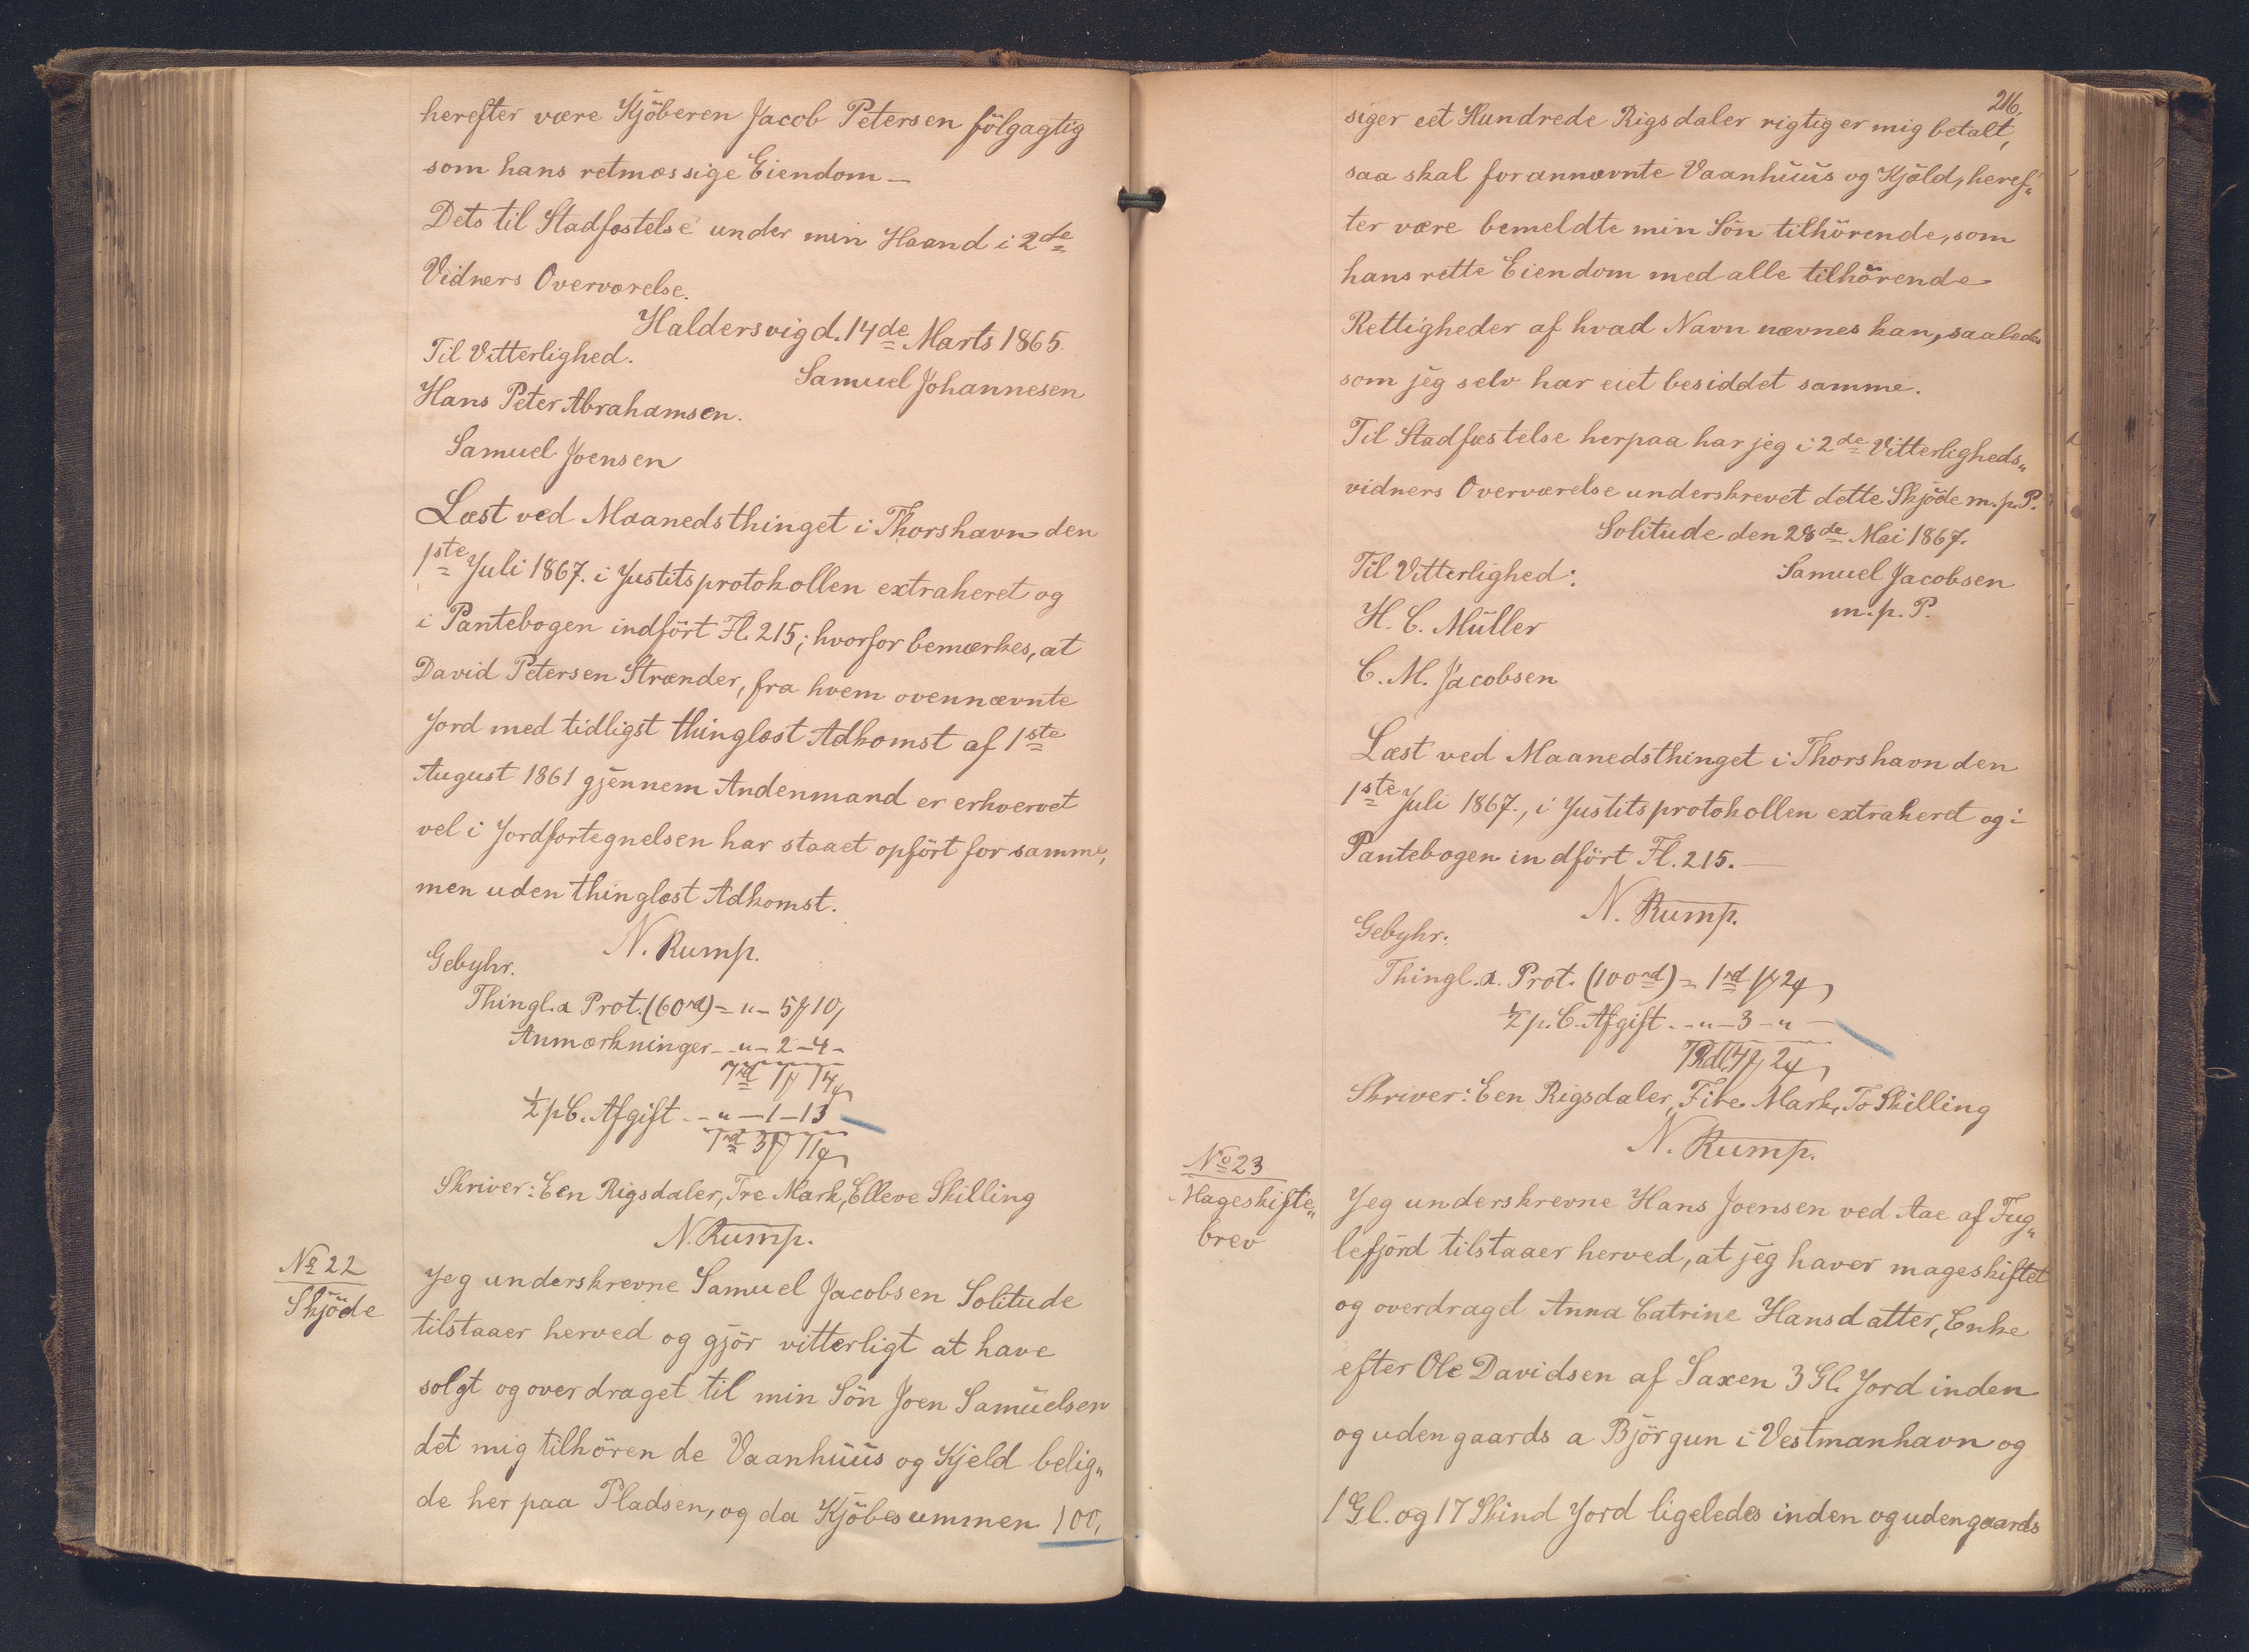 herefter være Kjöberen Jacob Petersen fölgagtig
som hans retmæssige Eiendom —
Dets til Stadfæstelse under min Haand i 2de
Vidners Overværelse.
Haldersvig d. 14de Marts 1865.
Til Vitterlighed.
Samuel Johannesen
Hans Peter Abrahamsen.
Samuel Joensen
Læst ved Maanedsthinget i Thorshavn den
1ste Juli 1867. i Justitsprotokollen extraheret og
i Pantebogen indfört Fl. 215; hvorfor bemærkes, at
David Petersen Strænder, fra hvem ovennævnte
Jord med tidligst thinglæst Adkomst af 1ste
August 1861 gjennem Andenmand er erhvervet
vel i Jordfortegnelsen har staaet opfört for samme,
men uden thinglæst Adkomst.
N. Rump.
Gebyhr.
Thingl. a Prot. (60rd) = " - 5 ß 10
Anmærkninger - - " - 2 - 4 -
1rd 1 ß 14
½ p C. Afgift - - " - 1 - 13
1rd 3 ß 11
Skriver: Een Rigsdaler, Tre Mark, Elleve Skilling
N. Rump.
No 22
Skjöde
Jeg underskrevne Samuel Jacobsen Solitude
tilstaaer herved og gjör vitterligt at have
solgt og overdraget til min Sön Joen Samuelsen
det mig tilhörende Vaanhuus og Kjeld belig„
de her paa Pladsen, og da Kjöbesummen 100,
216.
siger eet Hundrede Rigsdaler rigtig er mig betalt,
saa skal forannævnte Vaanhuus og Kjöld, heref„
ter være bemeldte min Sön tilhörende, som
hans rette Eiendom med alle tilhörende
Rettigheder af hvad Navn nævnes kan, saaledes
som jeg selv har eiet besiddet samme.
Til Stadfæstelse herpaa har jeg i 2de Vitterligheds„
vidners Overværelse underskrevet dette Skjöde m. p. P.
Solitude den 28de Mai 1867.
Til Vitterlighed:
Samuel Jacobsen
m. p. P.
H. C. Müller
C. M. Jacobsen
Læst ved Maanedsthinget i Thorshavn den
1ste Juli 1867., i Justitsprotokollen extraheret og i
Pantebogen indfört Fl. 215. —
N. Rump.
Gebyhr.
Thingl. a. Prot. (100rd) = 1rd 1 ß 2
½ p. C. Afgift - - " - 3 - " -
1 Rdl. 4 ß 2
Skriver: Een Rigsdaler, Fire Mark, To Skilling
N. Rump.
No 23
Mageskifte„
brev
Jeg underskrevne Hans Joensen ved Aae af Fug„
lefjörd tilstaaer herved, at jeg haver mageskiftet
og overdraget Anna Catrine Hansdatter, Enke
efter Ole Davidsen af Saxen 3 Gl. Jord inden
og uden gaards a Björgun i Vestmanhavn og
1 Gl. og 17 Skind Jord ligeledes inden og udengaards